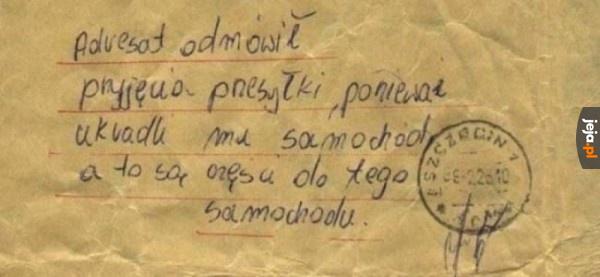 Adresat odmówił
przyjęcia przesyłki, ponieważ
ukradli mu samochód,
a to są części do tego
samochodu.
SZCZECIN 7
jeja.pl